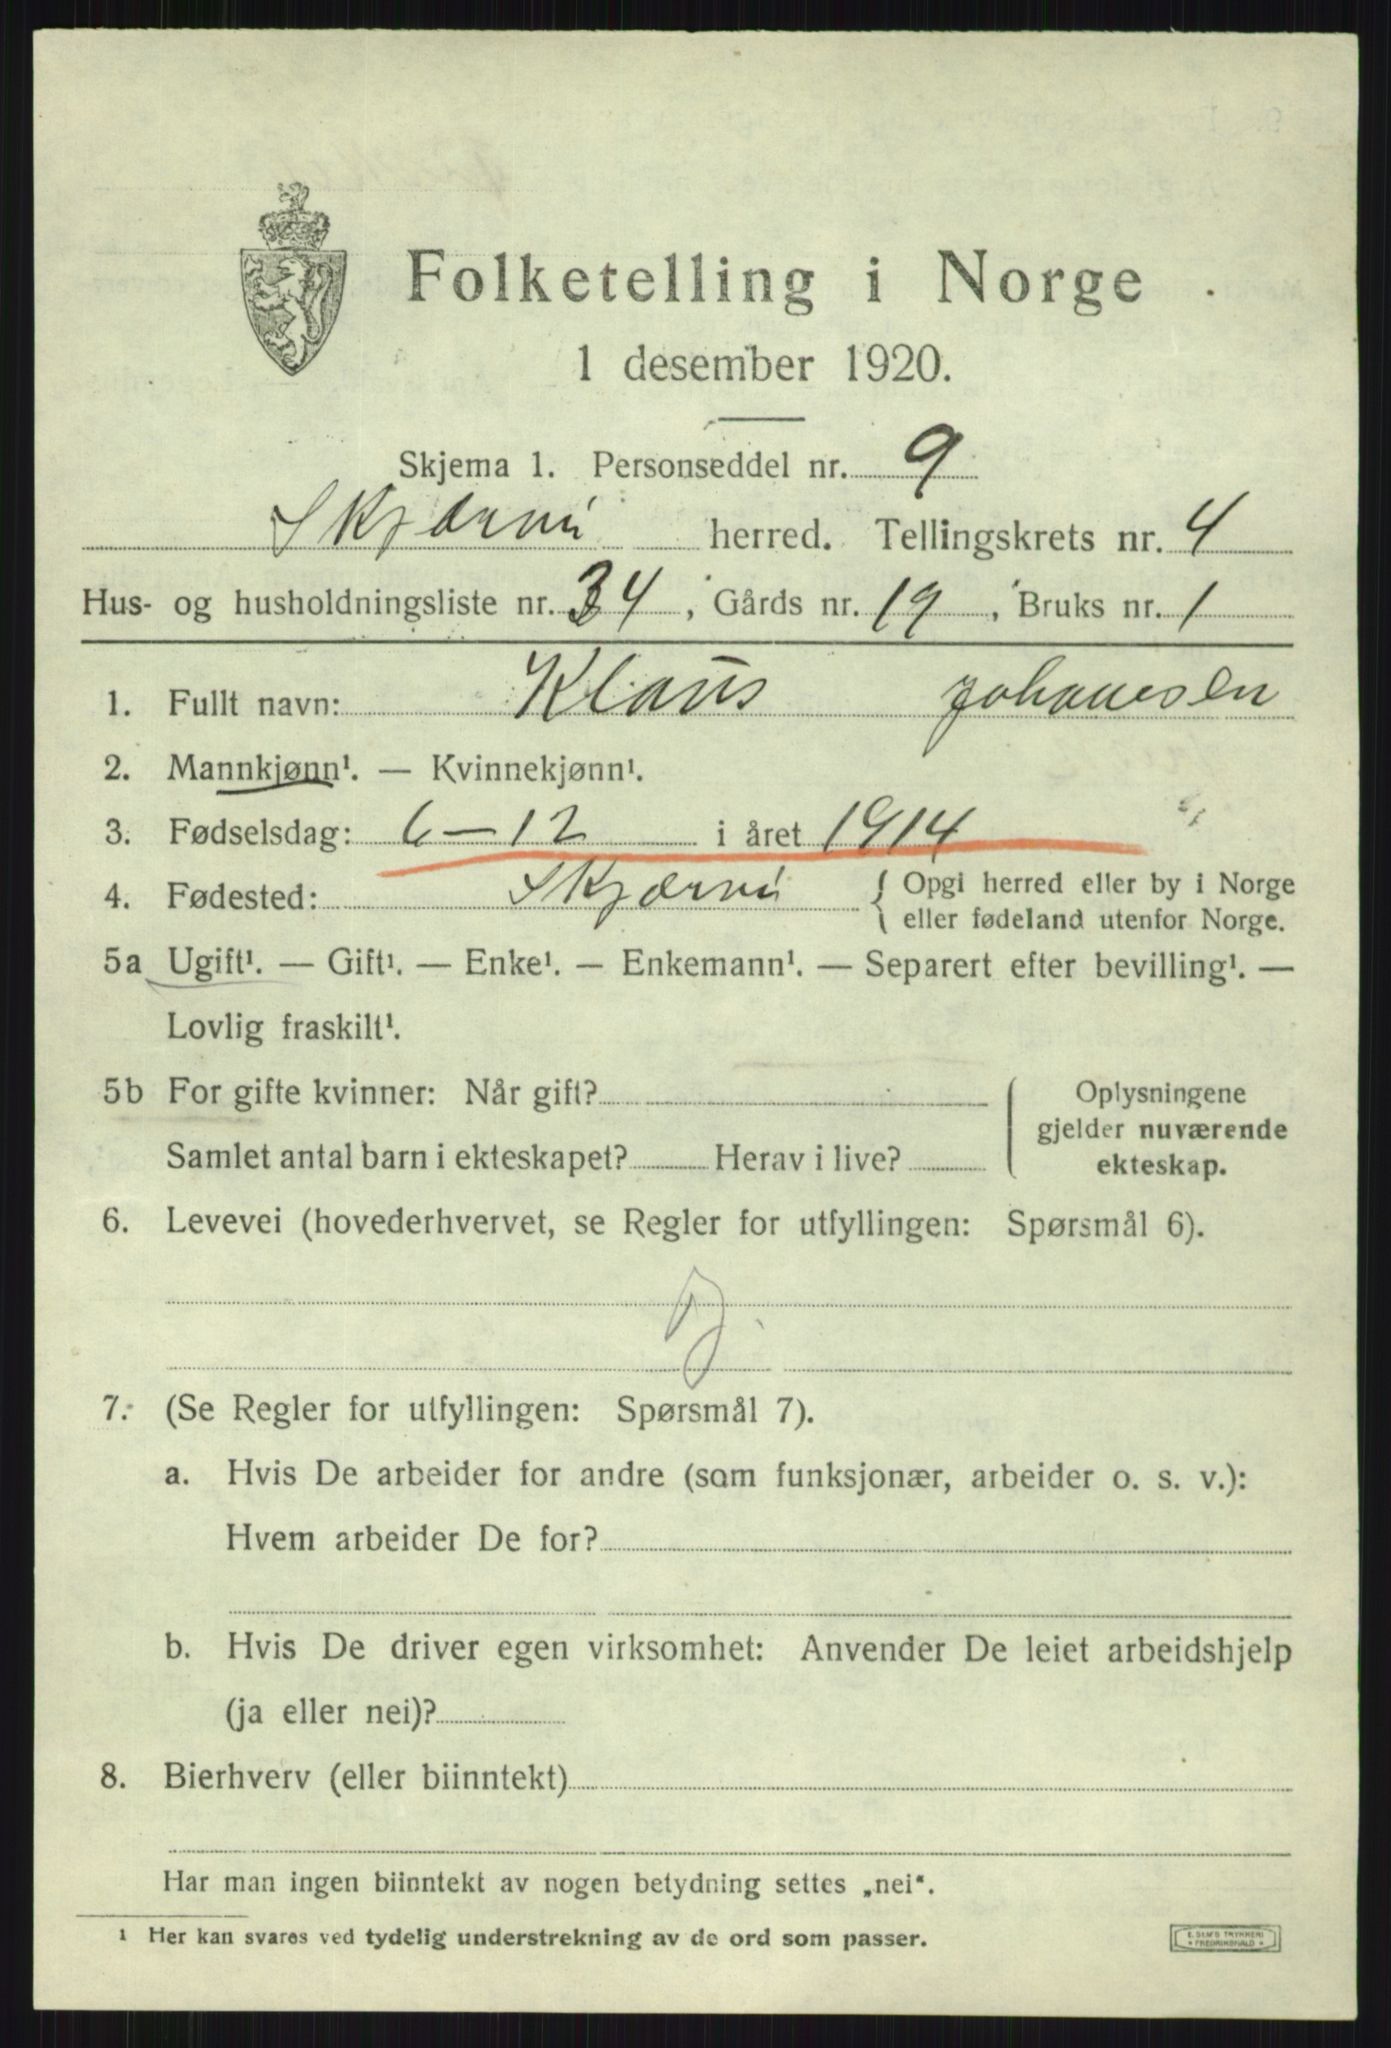 Folketelling i Norge
1 desember 1920.
Skjema 1. Personseddel nr. 9
Skjærvö herred. Tellingskrets nr. 4
Hus- og husholdningsliste nr. 34, Gårds nr. 19, Bruks nr. 1
1. Fullt navn: Klaus Johanesen
2. Mannkjønn¹. — Kvinnekjønn¹.
3. Fødselsdag: 6 — 12 i året 1914
4. Fødested: Skjærvö { Opgi herred eller by i Norge
eller fødeland utenfor Norge.
5a Ugift¹. — Gift¹. — Enke¹. — Enkemann¹. — Separert efter bevilling¹. —
Lovlig fraskilt¹.
5b For gifte kvinner: Når gift?
Samlet antal barn i ekteskapet? Herav i live?
Oplysningene
gjelder nuværende
ekteskap.
6. Levevei (hovederhvervet, se Regler for utfyllingen: Spørsmål 6).
7. (Se Regler for utfyllingen: Spørsmål 7).
a. Hvis De arbeider for andre (som funksjonær, arbeider o. s. v.):
Hvem arbeider De for?
b. Hvis De driver egen virksomhet: Anvender De leiet arbeidshjelp
(ja eller nei)?
8. Bierhverv (eller biinntekt)
Har man ingen biinntekt av nogen betydning settes „nei“.
¹ Her kan svares ved tydelig understrekning av de ord som passer.
E. SEM'S TRYKKERI
• FREDRIKSHALD •